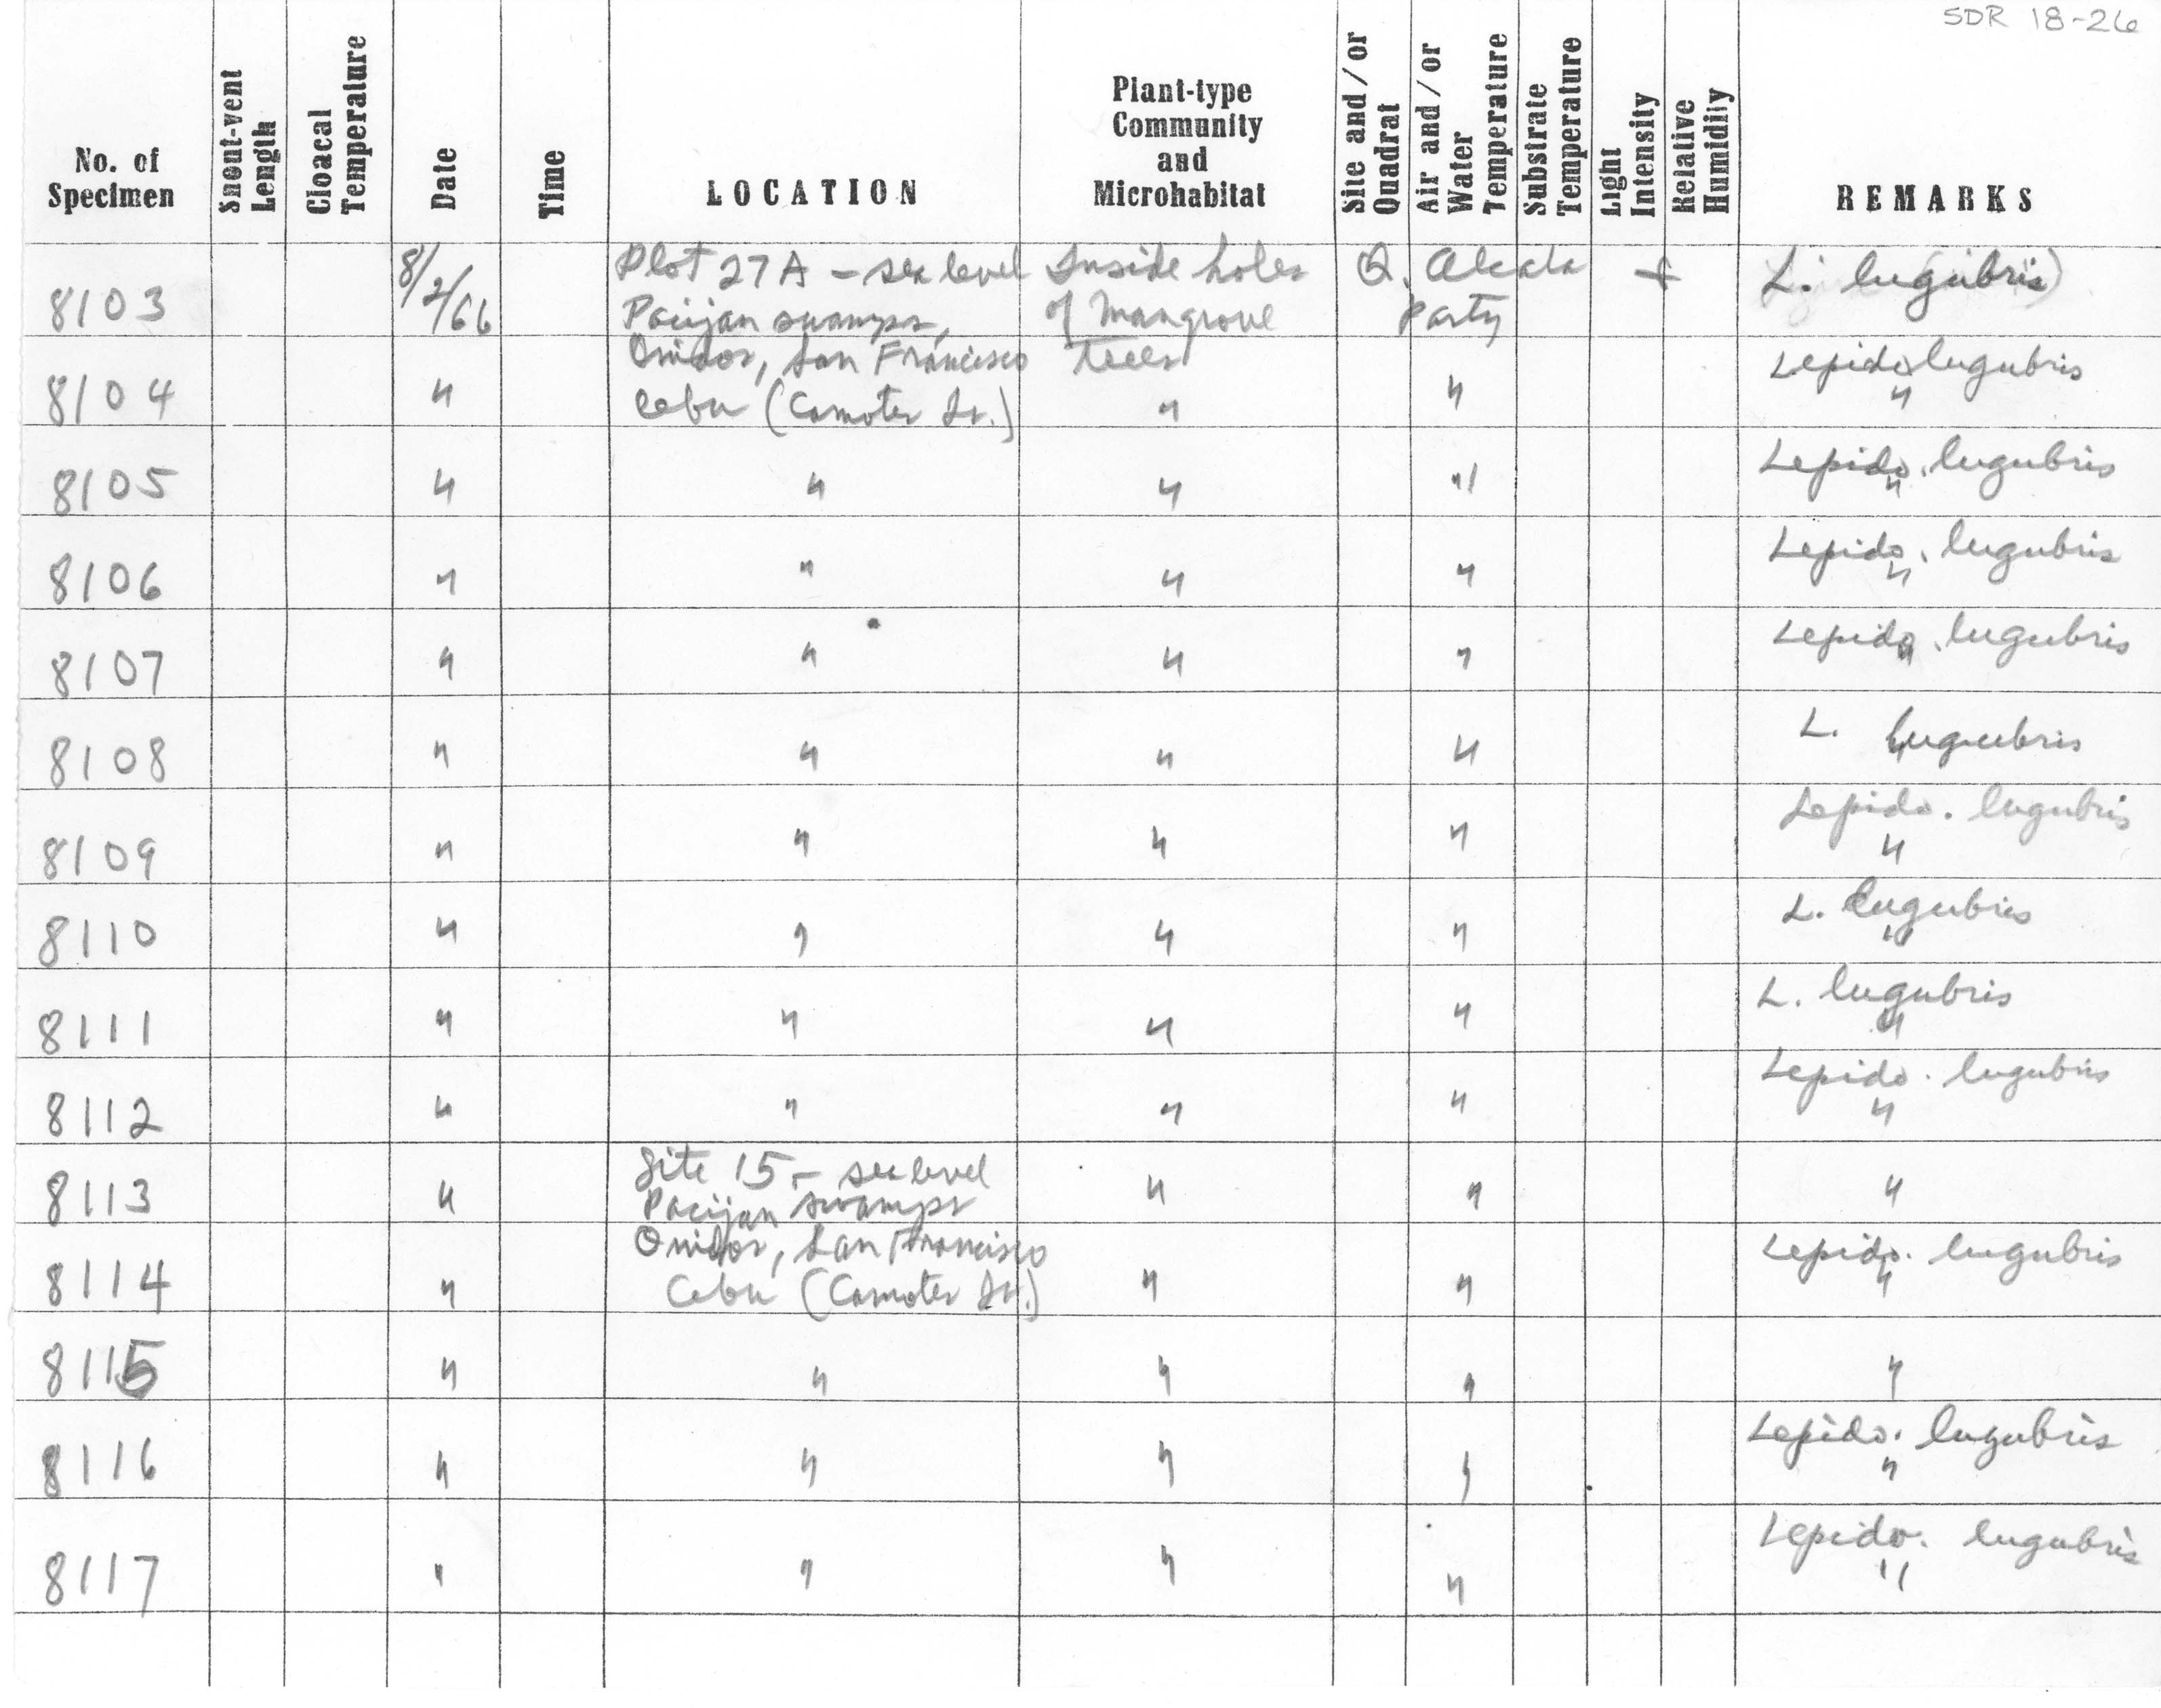 SDR 18-26
No. of Specimen Snout-vent Length Cloacal Temperature Date Time LOCATION Plant-type Community and Microhabitat Site and/or Quadrat Air and/or Water Temperature Substrate Temperature Light Intensity Relative Humidity REMARKS
8103 8/2/66 Plot 27A - sea level Inside holes Q. Alcala + L. lugubris
Pacijan swamps, of Mangrove Party
San Francisco trees
8104 " Cebu (Camotes Is.) " " Lepido. lugubris "
8105 " " " " Lepido. lugubris "
8106 " " " " Lepido. lugubris "
8107 " " " " Lepido. lugubris "
8108 " " " " L. lugubris
8109 " " " " Lepido. lugubris "
8110 " " " " L. lugubris "
8111 " " " " L. lugubris "
8112 " " " " Lepido. lugubris "
Site 15 - sea level
8113 " Pacijan swamps " " "
San Francisco
8114 " Cebu (Camotes Is.) " " Lepido. lugubris "
8115 " " " " "
8116 " " " " Lepido. lugubris "
8117 " " " " Lepido. lugubris "